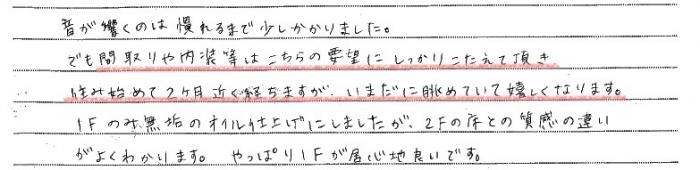 音が響くのは慣れるまで少しかかりました。
でも間取りや内装等はこちらの要望にしっかりこたえて頂き
住み始めて2ヶ月近く経ちますが、いまだに眺めていて嬉しくなります。
1Fのみ無垢のオイル仕上げにしましたが、2Fの床との質感の違い
がよくわかります。やっぱり1Fが居心地良いです。